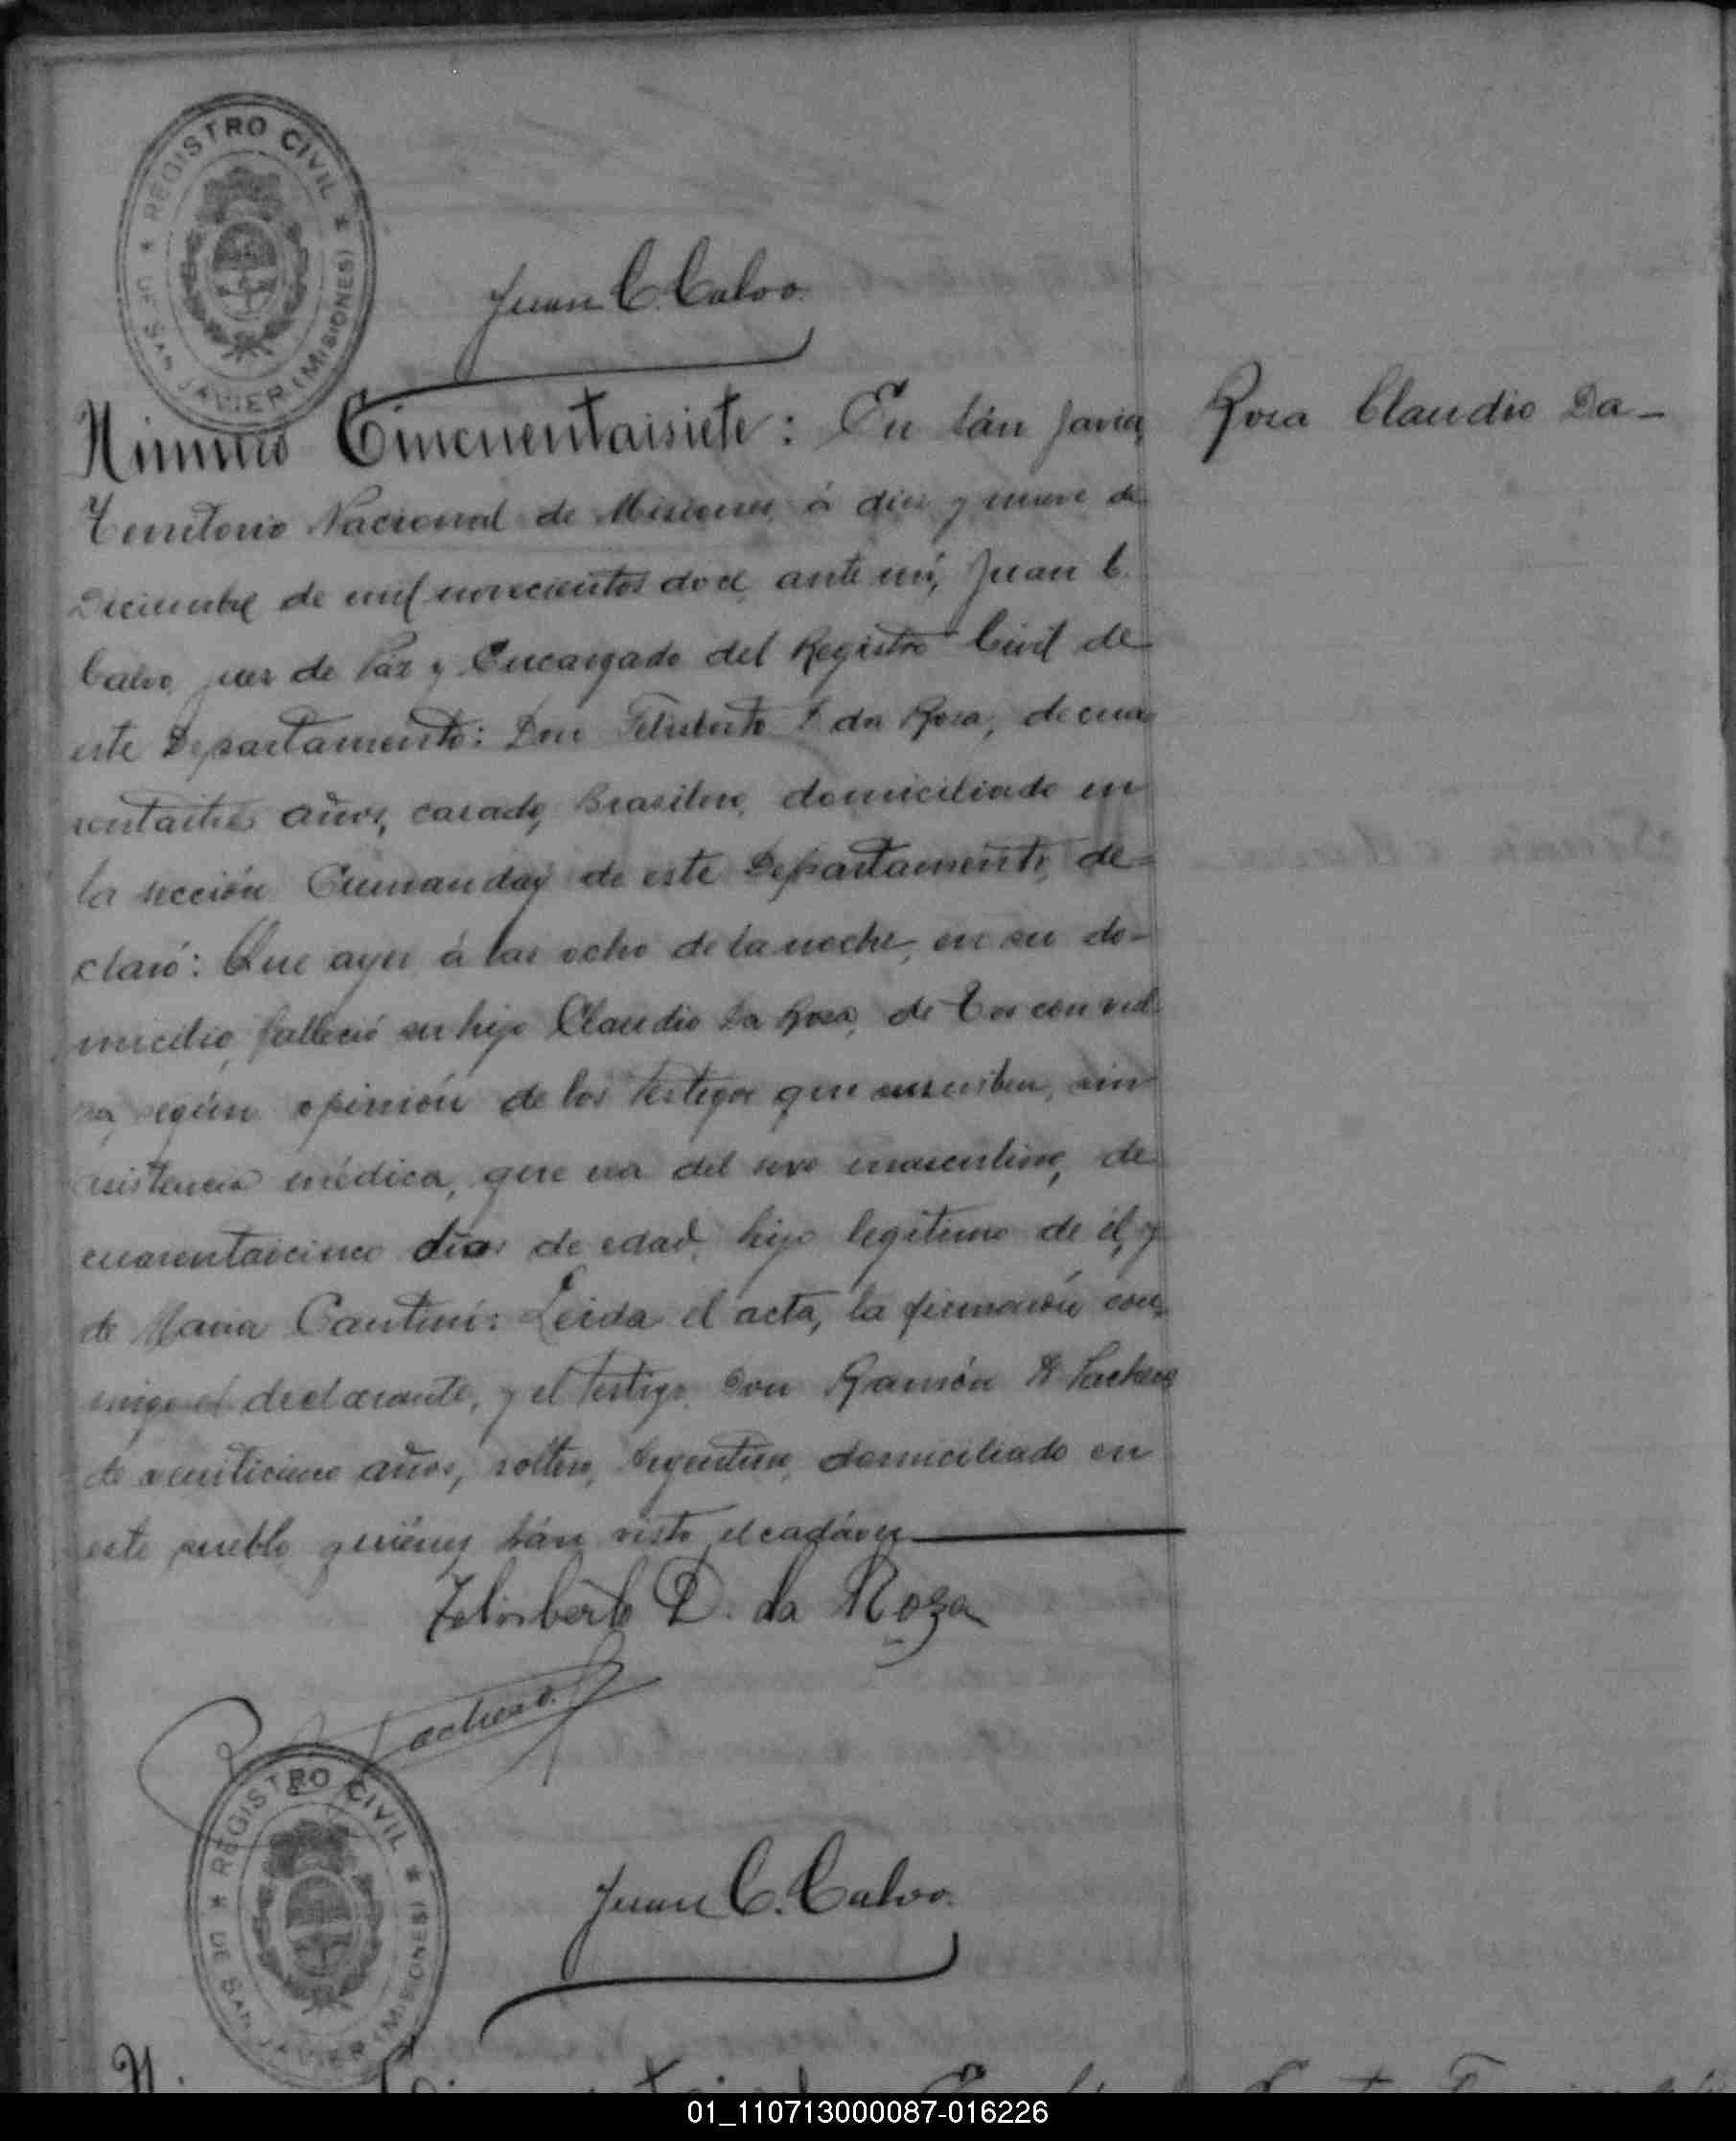 REGISTRO CIVIL
DE SAN JAVIER (MISIONES)
Juan C. Calvo
Número Cincuentaisiete: En Sán Javier,
Rosa Claudio Da-
Territorio Nacional de Misiones, á diez y nueve de
Diciembre de mil novecientos doce, ante mí, Juan C.
Calvo, juez de Paz y Encargado del Registro Civil de
este Departamento: Don Felisberto D. da Rosa, de cua
rentaitres años, casado, Brasilero, domiciliado en
la sección Cumanday de este Departamento, de-
claró: Que ayer á las ocho de la noche, en su do-
micilio, falleció su hijo Claudio Da Rosa, de Tos convul
sa, según opinión de los testigos que suscriben, sin
asistencia médica, que era del sexo masculino, de
cuarentaicinco días de edad, hijo legítimo de él, y
de María Cantini: Leida el acta, la firmarón con-
migo el declarante, y el testigo, Don Ramón Pacheco
de veinticinco años, soltero, Argentino, domiciliado en
este pueblo, quiénes hán visto el cadáver
Felisberto D. da Roza
R. Pacheco
REGISTRO CIVIL
DE SAN JAVIER (MISIONES)
Juan C. Calvo
01_110713000087-016226